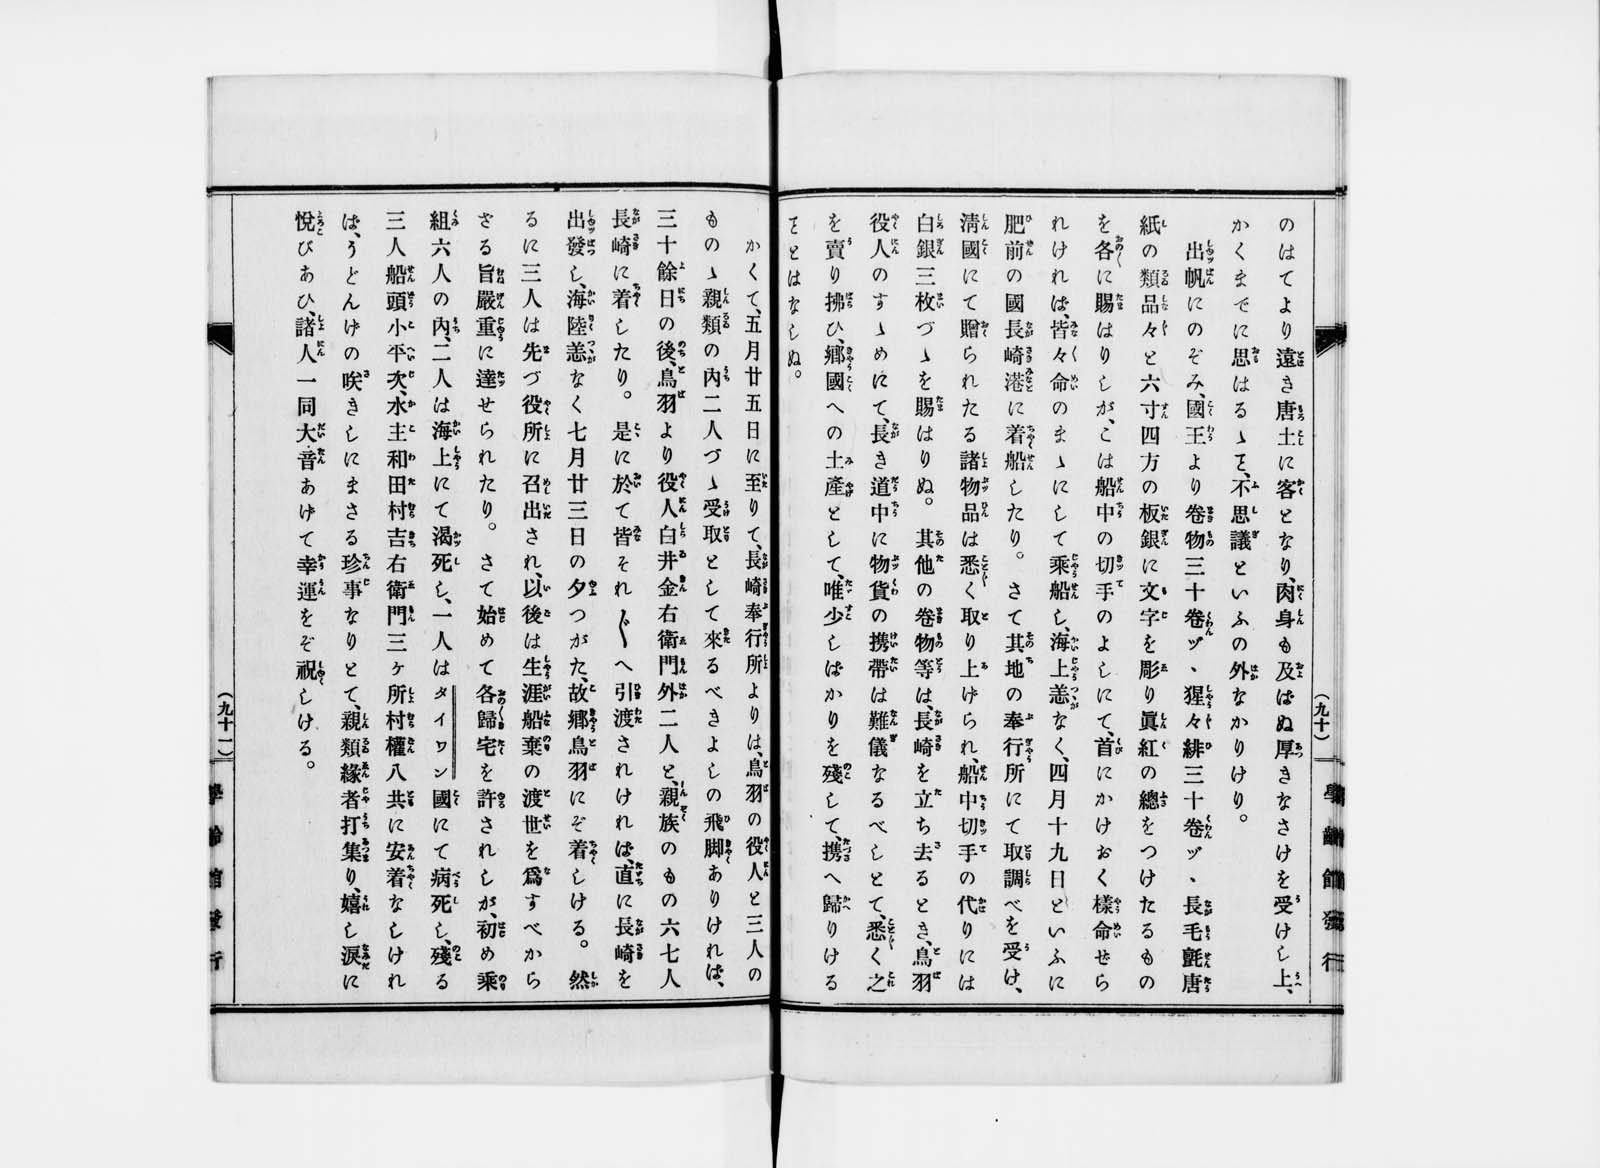 のはてより遠き唐土に客となり、肉身も及ばぬ厚きなさけを受けし上、
かくまでに思はるゝを、不思議といふの外なかりけり。
出帆にのぞみ、國王より卷物三十卷ヅヽ猩々緋三十卷ヅヽ長毛氈唐
紙の類品々と六寸四方の板銀に文字を彫り眞紅の總をつけたるもの
を各に賜はりしが、こは船中の切手のよしにて、首にかけおく樣命せら
れければ、皆々命のまゝにして乘船し、海上恙なく、四月十九日といふに
肥前の國長崎港に着船したり。さて其地の奉行所にて取調べを受け、
淸國にて贈られたる諸物品は悉く取り上げられ、船中切手の代りには
白銀三枚づゝを賜はりぬ。其他の卷物等は、長崎を立ち去るとき、鳥羽
役人のすゝめにて、長き道中に物貨の携帶は難儀なるべしとて、悉く之
を賣り拂ひ、鄕國への土產として、唯少しばかりを殘して、携へ歸りける
をとはなしぬ。
(九十)
學齡館發行
かくて、五月廿五日に至りて、長崎奉行所よりは、鳥羽の役人と三人の
ものゝ親類の內二人づゝ受取として來るべきよしの飛脚ありければ、
三十餘日の後、鳥羽より役人白井金右衞門外二人と、親族のもの六七人
長崎に着したり。是に於て皆それ〴〵へ引渡されければ、直に長崎を
出發し、海陸恙なく七月廿三日の夕つがた、故鄕鳥羽にぞ着しける。然
るに三人は先づ役所に召出され、以後は生涯船乘の渡世を爲すべから
ざる旨嚴重に達せられたり。さて始めて各歸宅を許されしが、初め乘
組六人の內、二人は海上にて渴死し、一人はタイワン國にて病死し、殘る
三人船頭小平次、水主和田村吉右衞門三ヶ所村權八共に安着なしけれ
ば、うどんげの咲きしにまさる珍事なりとて、親類緣者打集り、嬉し淚に
悅びあひ、諸人一同大音あげて幸運をぞ祝しける。
(九十一)
學齡館發行